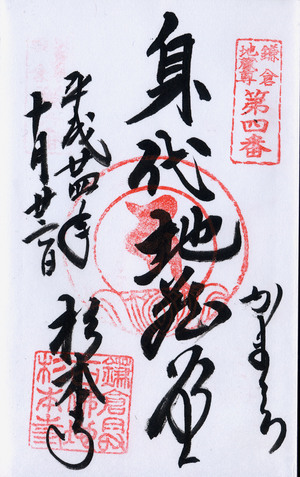 鎌倉
地蔵尊
第四番
かまくら
身代地蔵堂
平成廿四年
十月廿二日
杉本寺
鎌倉最
古佛地
杉本寺